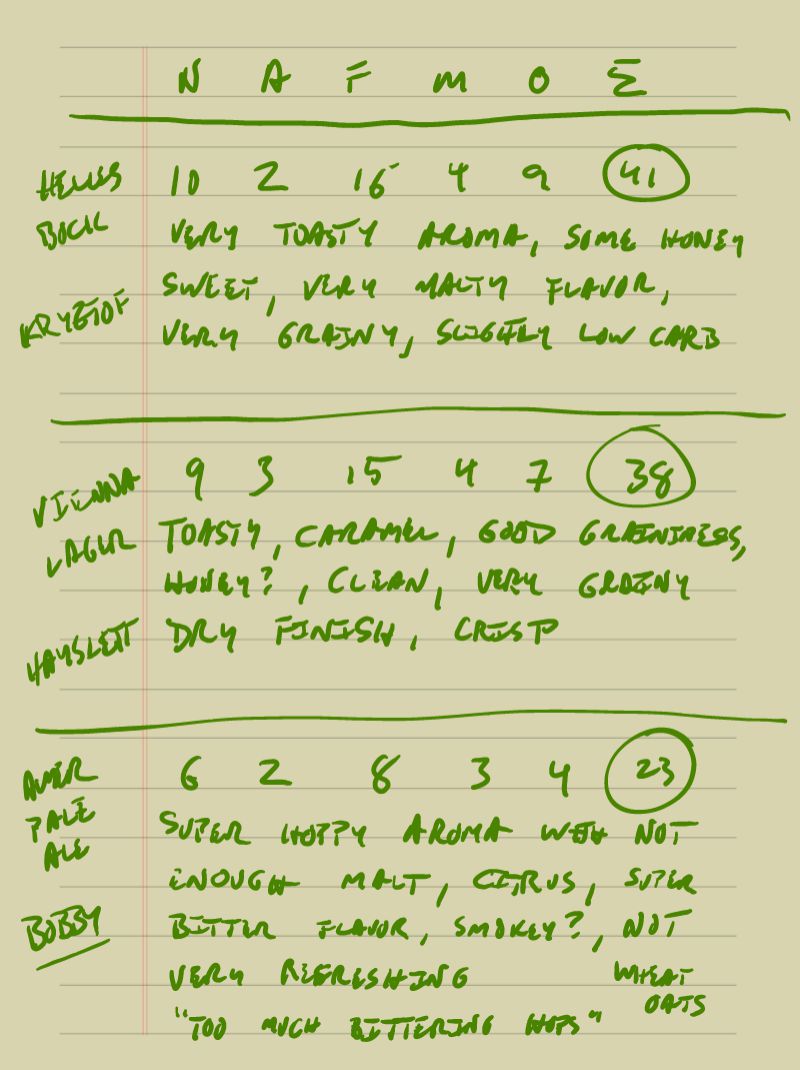 N A F M O Σ
HELLES 10 2 16 4 9 41
BOCK VERY TOASTY AROMA, SOME HONEY
SWEET, VERY MALTY FLAVOR,
KRYZTOF VERY GRAINY, SLIGHTLY LOW CARB
VIENNA 9 3 15 4 7 38
LAGER TOASTY, CARAMEL, GOOD GRAININESS,
HONEY?, CLEAN, VERY GRAINY
HAYSLETT DRY FINISH, CRISP
AMER 6 2 8 3 4 23
PALE SUPER HOPPY AROMA WITH NOT
ALE ENOUGH MALT, CITRUS, SUPER
BOBBY BITTER FLAVOR, SMOKEY?, NOT
VERY REFRESHING WHEAT
OATS
"TOO MUCH BITTERING HOPS"